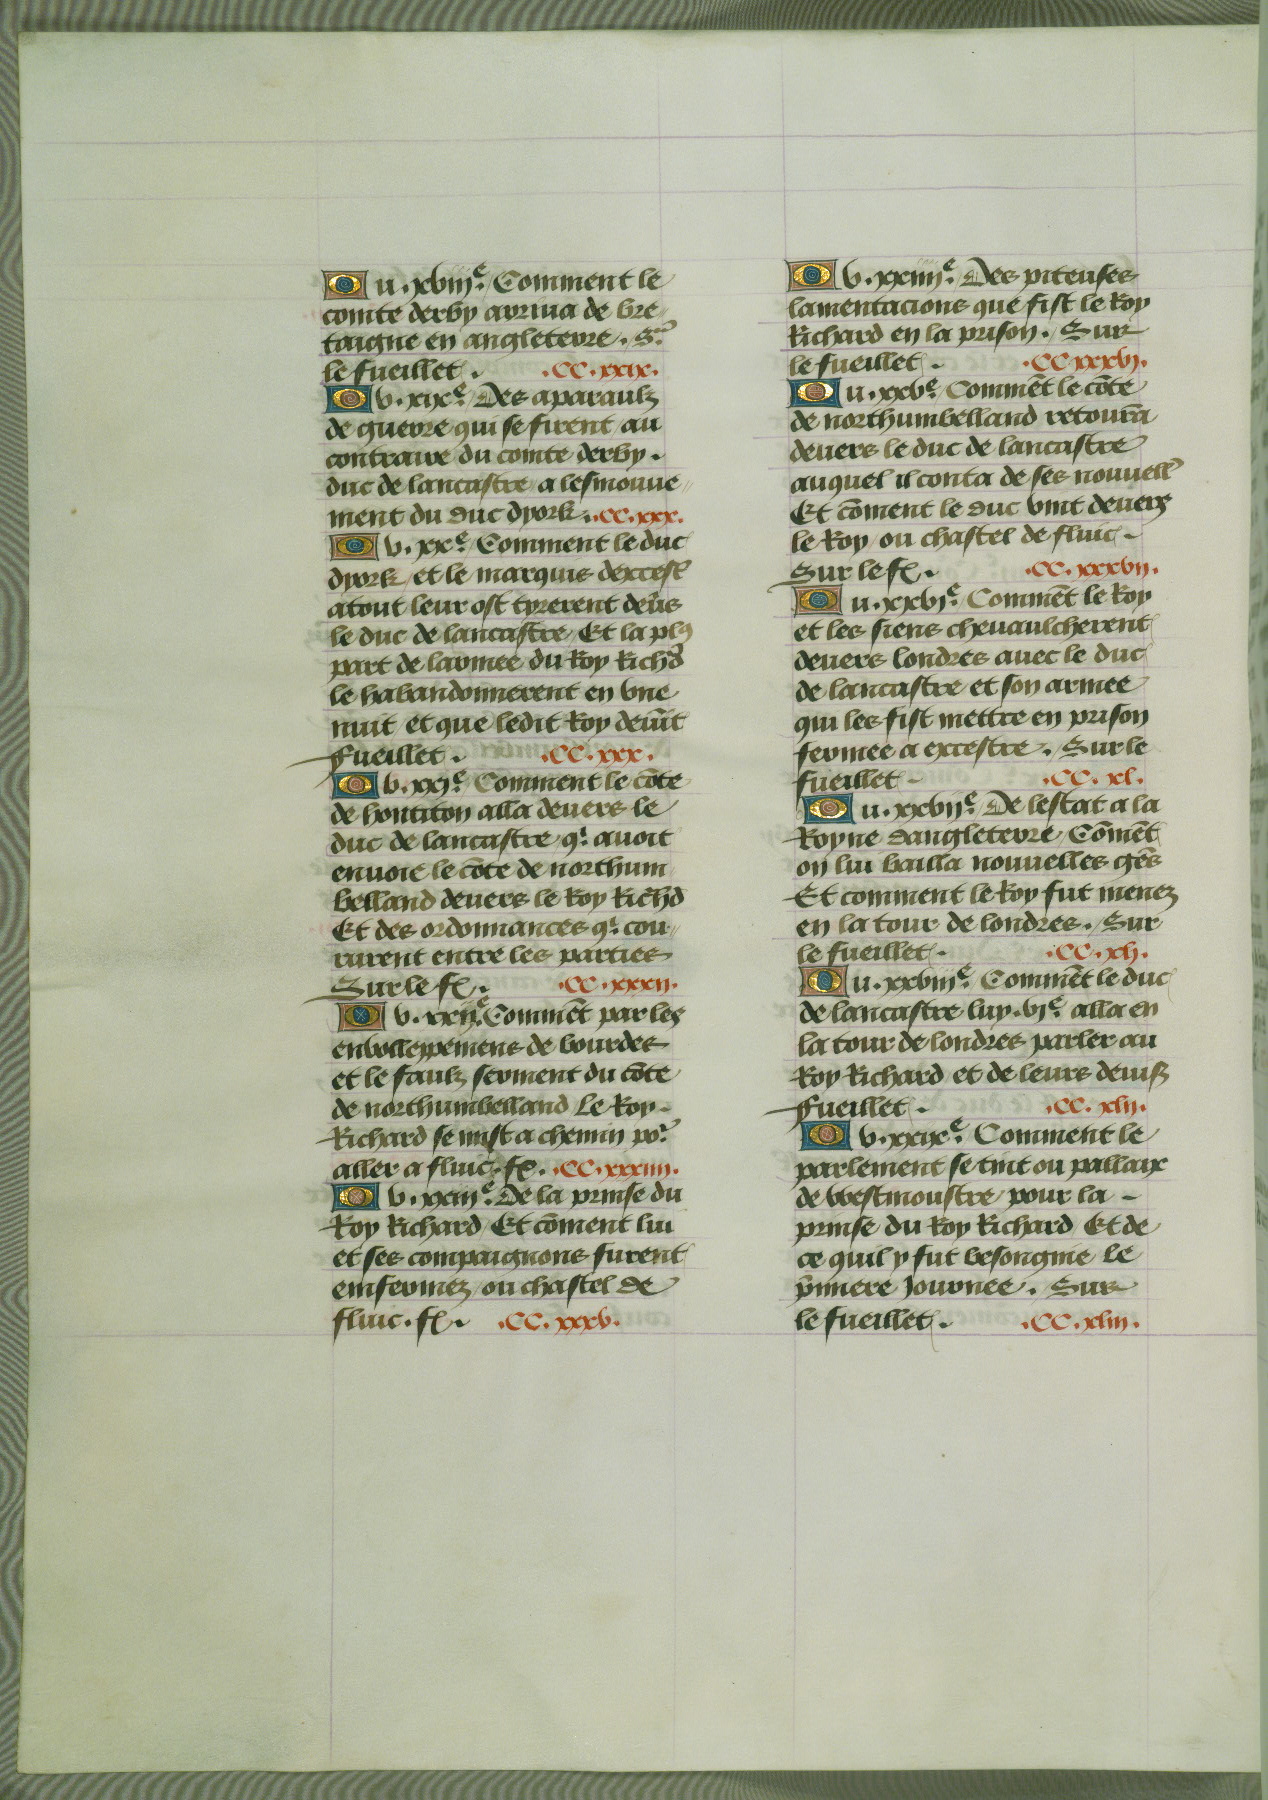 Ou .xviije. Comment le
comte derby arriua de bre-
taigne en angleterre. Sr
le fueillet. .CC.xxix.
Ov. xixe. Des aparaulz
de guerre qui se firent au
contraire du comte derby.
duc de lancastre a lesmouue-
ment du duc dyork. .CC.xxx.
Ov. xxe. Comment le duc
dyork et le marquis dexcest'
atout leur ost tyrerent deu̅s
le duc de lancastre Et la plus
part de larmee du Roy Rich̅d
le habandonnerent en vne
nuit et que ledit Roy deuīt
fueillet. .CC.xxx.
Ov. xxje. Comment le cōte
de hontiton alla deuers le
duc de lancastre qi auoit
enuoie le cōte de northum
belland deuers le Roy Rich̅d
Et des ordonnances qi cou-
rurent entre les parties
Sur le fl. .CC.xxxij.
Ov. xxije. Commēt par les
enuolleppemens de bourdes
et le faulz serment du cōte
de northumbelland Le Roy.
Richard se mist a chemin por
aller a fluic. fl. .CC.xxxiiij.
Ov. xxiije. De la prinse du
Roy Richard Et cōment lui
et ses compaignons furent
emfermez ou chastel de
fluic. fl. .CC.xxxv.
Ov. xxiiije. Des piteuses
lamentacions que fist le Roy
Richard en la prison. Sur
le fueillet. .CC.xxxvj.
Ou. xxve. Commēt le cōte
de northumbelland retourā
deuers le duc de lancastre
auquel il conta de ses nouuell'
Et cōment le duc vint deuers
le Roy ou chastel de fluic.
Sur le fl. .CC.xxxvij.
Ou. xxvje. Commēt le Roy
et les siens cheuaulcherent
deuers londres auec le duc
de lancastre et son armee
qui les fist mettre en prison
fermee a excestre. Sur le
fueillet .CC.xl.
Ou. xxvije. De lestat a la
Royne dangleterre Cōmēt
on lui bailla nouuelles
Et comment le Roy fut menez
en la tour de londres. Sur
le fueillet. .CC.xlj.
Ou. xxviije. Commēt le duc
de lancastre luy .vje. alla en
la tour de londres parler au
Roy Richard et de leurs deuis̅
fueillet. .CC.xlij.
Ov. xxixe. Comment le
parlement se tint ou pallaix
de westmoustre pour la
prinse du Roy Richard Et de
ce quil y fut besongnie Le
p̄miere Journee. Sur
le fueillet. .CC.xliij.